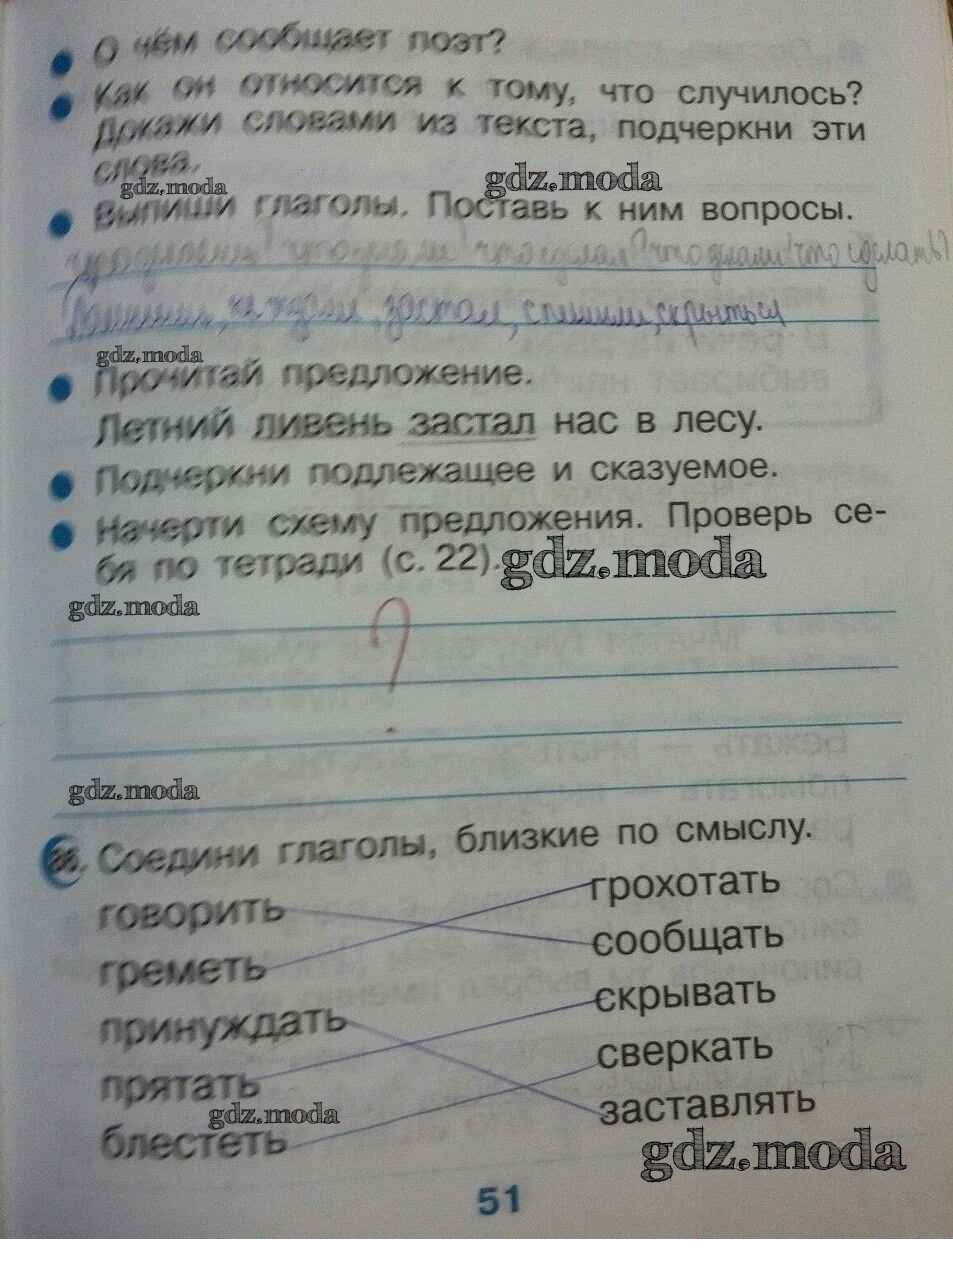 О чём сообщает поэт?
Как он относится к тому, что случилось?
Докажи словами из текста, подчеркни эти
слова.
gdz.moda gdz.moda
Выпиши глаголы. Поставь к ним вопросы.
что сделать?
не ждали, застал, спешили, скрыться
gdz.moda
Прочитай предложение.
Летний ливень застал нас в лесу.
Подчеркни подлежащее и сказуемое.
Начерти схему предложения. Проверь се-
бя по тетради (с. 22).
gdz.moda
gdz.moda
?
gdz.moda
Соедини глаголы, близкие по смыслу.
говорить грохотать
греметь сообщать
принуждать скрывать
прятать сверкать
блестеть заставлять
gdz.moda
gdz.moda
51